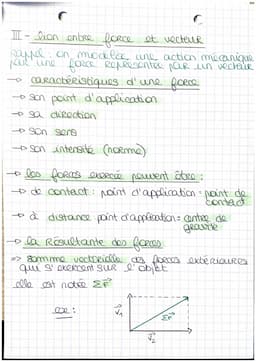 III - lien entre force et vecteur
Rappel : on modélise une action mécanique
par une force représentée par un vecteur
→ caractéristiques d'une force
→ son point d'application
→ sa direction
→ son sens
→ son intensité (norme)
→ les forces exercée peuvent être :
→ de contact : point d'application = point de
contact
→ à distance point d'application = centre de
gravité
→ la Résultante des forces
=> somme vectorielle des forces extérieures
qui s'exercent sur l'objet
elle est notée ΣF⃗
ex :
V⃗₁
ΣF⃗
V⃗₂